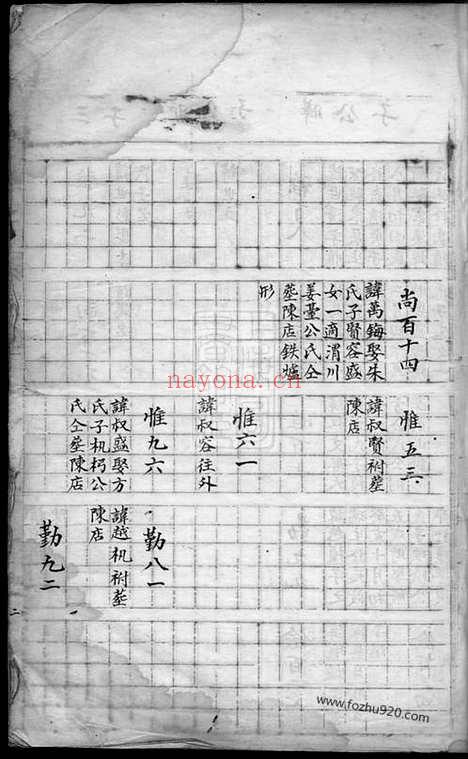 尚百十四
諱萬鋂娶朱
氏子賢容盛
女一適渭川
姜臺公氏仝
塟陳店鉄爐
形
惟五三
諱叔賢祔塟
陳店
惟六一
諱叔容往外
惟九六
諱叔盛娶方
氏子机朽公
氏仝塟陳店
勤八一
諱越机祔塟
陳店
勤九二
nayona.cn
www.fozhu920.com